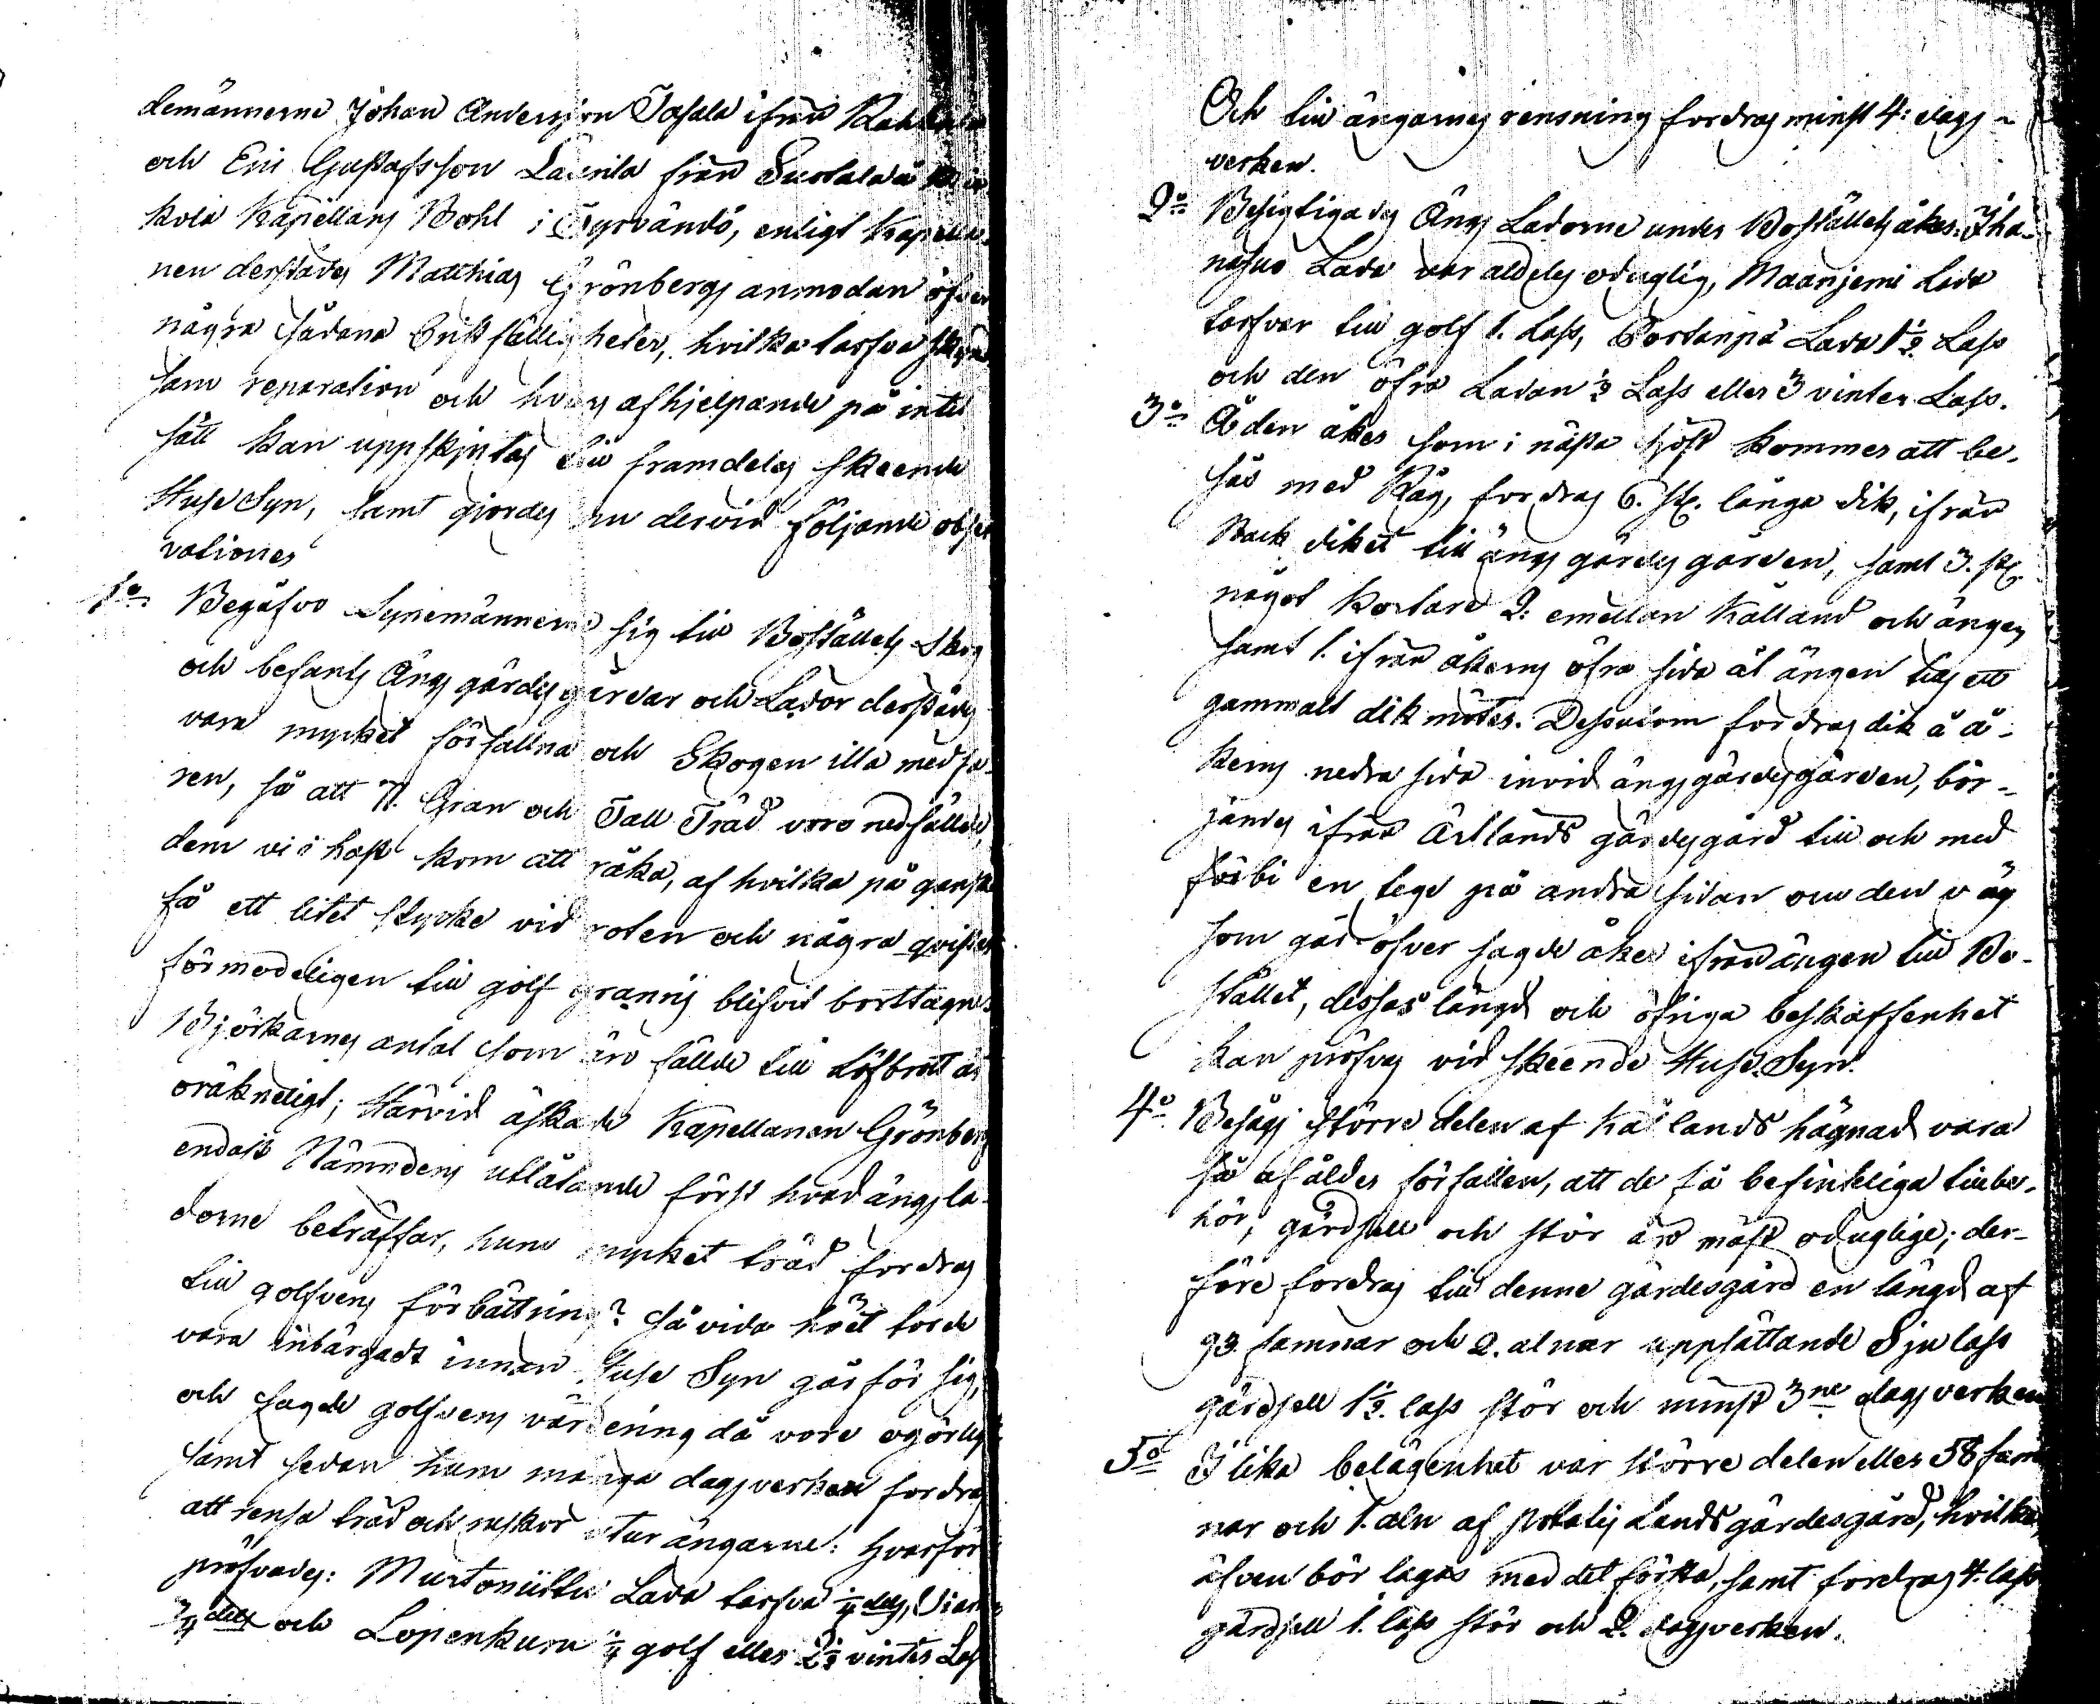 demännerne Johan Andersson Tasala ifrån
och Eric Gustafsson Laurila från Suotala å
Kapellans Bohl i Tyrvändö, enligt Kapella-
nen derstädes Matthias Grönbergs anmodan öfver
några sådana Bristfälligheter, hvilka tarfva skynd-
sam reparation och hvars afhjelpande på intet
sätt kan uppskjutas till framdeles skeende
Huse Syn, samt gjordes nu dervid följande obser
vationer
1o Begåfvo Synemännerne sig till Boställets Skog
och befants Ängs gärdes gårdar och Lador derstädes
vara mycket förfallna och Skogen illa medfa-
ren, så att 71. Gran och Tall Träd voro nedfällde,
dem vi i hast kom att råka, af hvilka på ganska
få ett litet stycke vid roten och några qvistar
förmodeligen till golf granris blifvit borttagne.
Björkarnes antal som äro fällde till Löfbrott är
oräkneligt; Härvid äskade Kapellanen Grönberg
endast Nämndens utlåtande först hvad ängsla-
dorne beträffar, huru mycket träd fordras
till golfvens förbättring? så vida höet torde
vara inbärgadt innan Huse Syn går för sig,
och sagde golfvens värdering då vore ogörlig
samt sedan huru många dagsverken fordras
att rensa träd och ruskor utur ängarne: hvarför
pröfvades: Murtoniittu Lada tarfva 1/4 dels,
3/4 dels och Lopenkuru 1/4 golf eller 2 1/2 vinter Lass
Och till ängarnes rensning fordras minst 4: dags-
verken.
2o Besigtigades Ängs Ladorne under Boställets åker: Iha-
nasuo Lada var aldeles oduglig, Maanjemi Lada
tarfvar till golf 1. Lass, Portanpä Lada 1 1/2 Lass
och den öfra Ladan 1/2 Lass eller 3 vinter Lass.
3o Å den åker som i nästa höst kommer att be-
sås med Råg, fordras 6. st. långa dik, ifrån
Back diket till ängs gärdes gården, samt 3. st.
något kortare 2: emellan Kålland och ängen
samt 1. ifrån åkerns öfra sida åt ängen tills ett
gammalt dik möter. Dessutom fordras dik å å-
kerns nedra sida invid ängsgärdesgården, bör-
jandes ifrån Ärtlands gärdesgård till och med
förbi en tege på andra sidan om den väg
som går öfver sagde åker ifrån ängen till Bo-
stället, dessas längd och öfriga beskaffenhet
kan pröfvas vid skeende Huse Syn.
4o Besågs större delen af Kå lands hägnad vara
så af ålder förfallen, att de få befinteliga tillbe-
hör, gärdsell och stör äro mäst oduglige; der-
före fordras till denne gärdesgård en längd af
93 famnar och 2. alnar uppsättande Sju lass
gärdsell 1 1/2. lass stör och minst 3ne dagsverken
5o I lika belägenhet var större delen eller 58 fam
nar och 1. aln af potatis Lands gärdesgård, hvilken
äfven bör lagas med det första, samt fordras 4. lass
gärdsell 1. lass stör och 2. dagsverken.